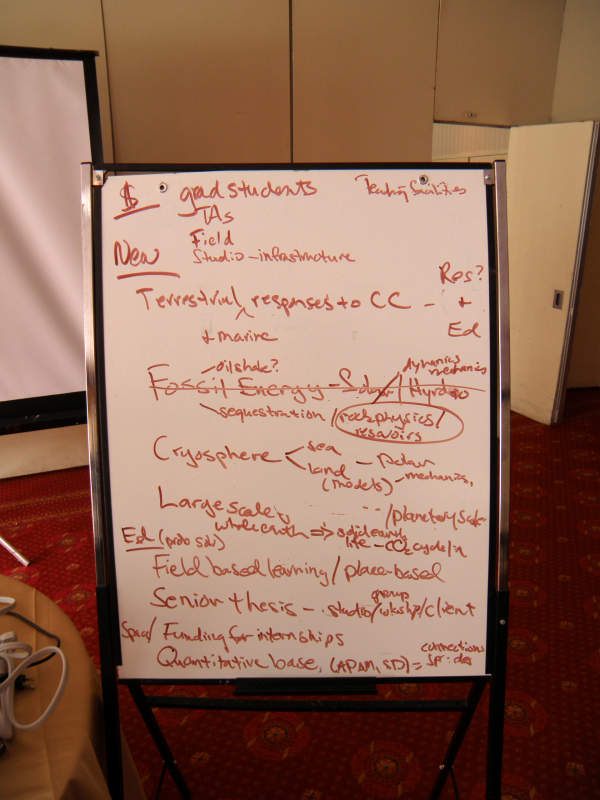 $ grad students Teaching facilities
TAs
Field
New Studio - infrastructure
Terrestrial ^ responses to CC - Res? + Ed
+ marine
- oil shale? dynamics mechanics
Fossil Energy - Solar / Hydro
sequestration / rock physics /
resavoirs
Cryosphere < sea
land - Polar
(models) - mechanics,
Large scale, / planetary scale
whole earth => solid earth
Ed (prob solv) life - CO2 cycle /
Field based learning / place-based
group
Senior thesis - studio / wkshp / client
Space / Funding for internships
Quantitative base, (APAM, SD) = connections